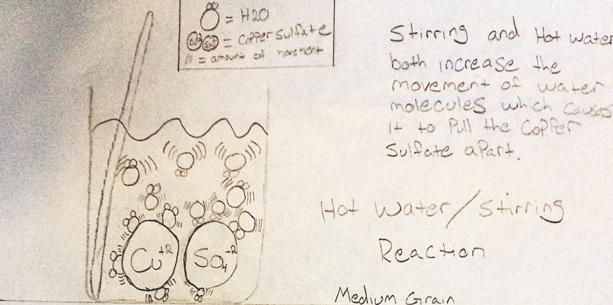 = H2O
Cu+2 SO4 = Copper Sulfate
))) = amount of movement
Stirring and Hot water
both increase the
movement of water
molecules which causes
it to Pull the Copper
Sulfate apart.
Cu+2
SO4-2
Hot Water/Stirring
Reaction
Medium Grain